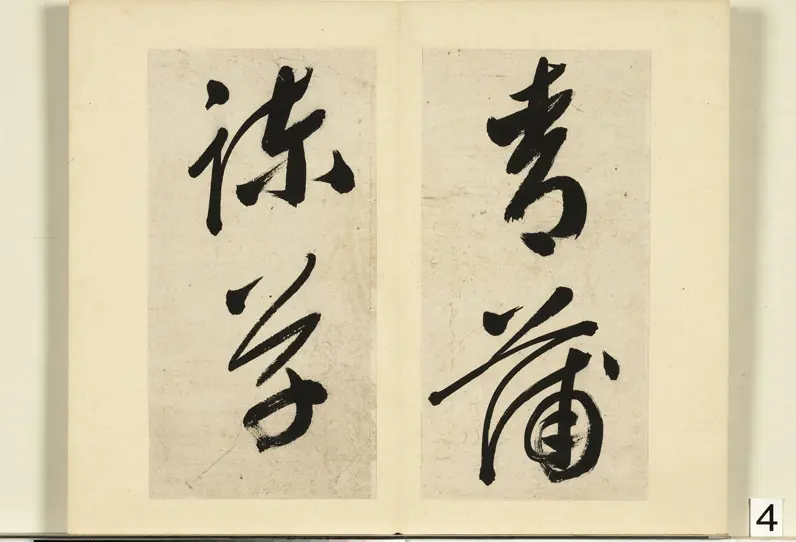 青蒲
諫草
4